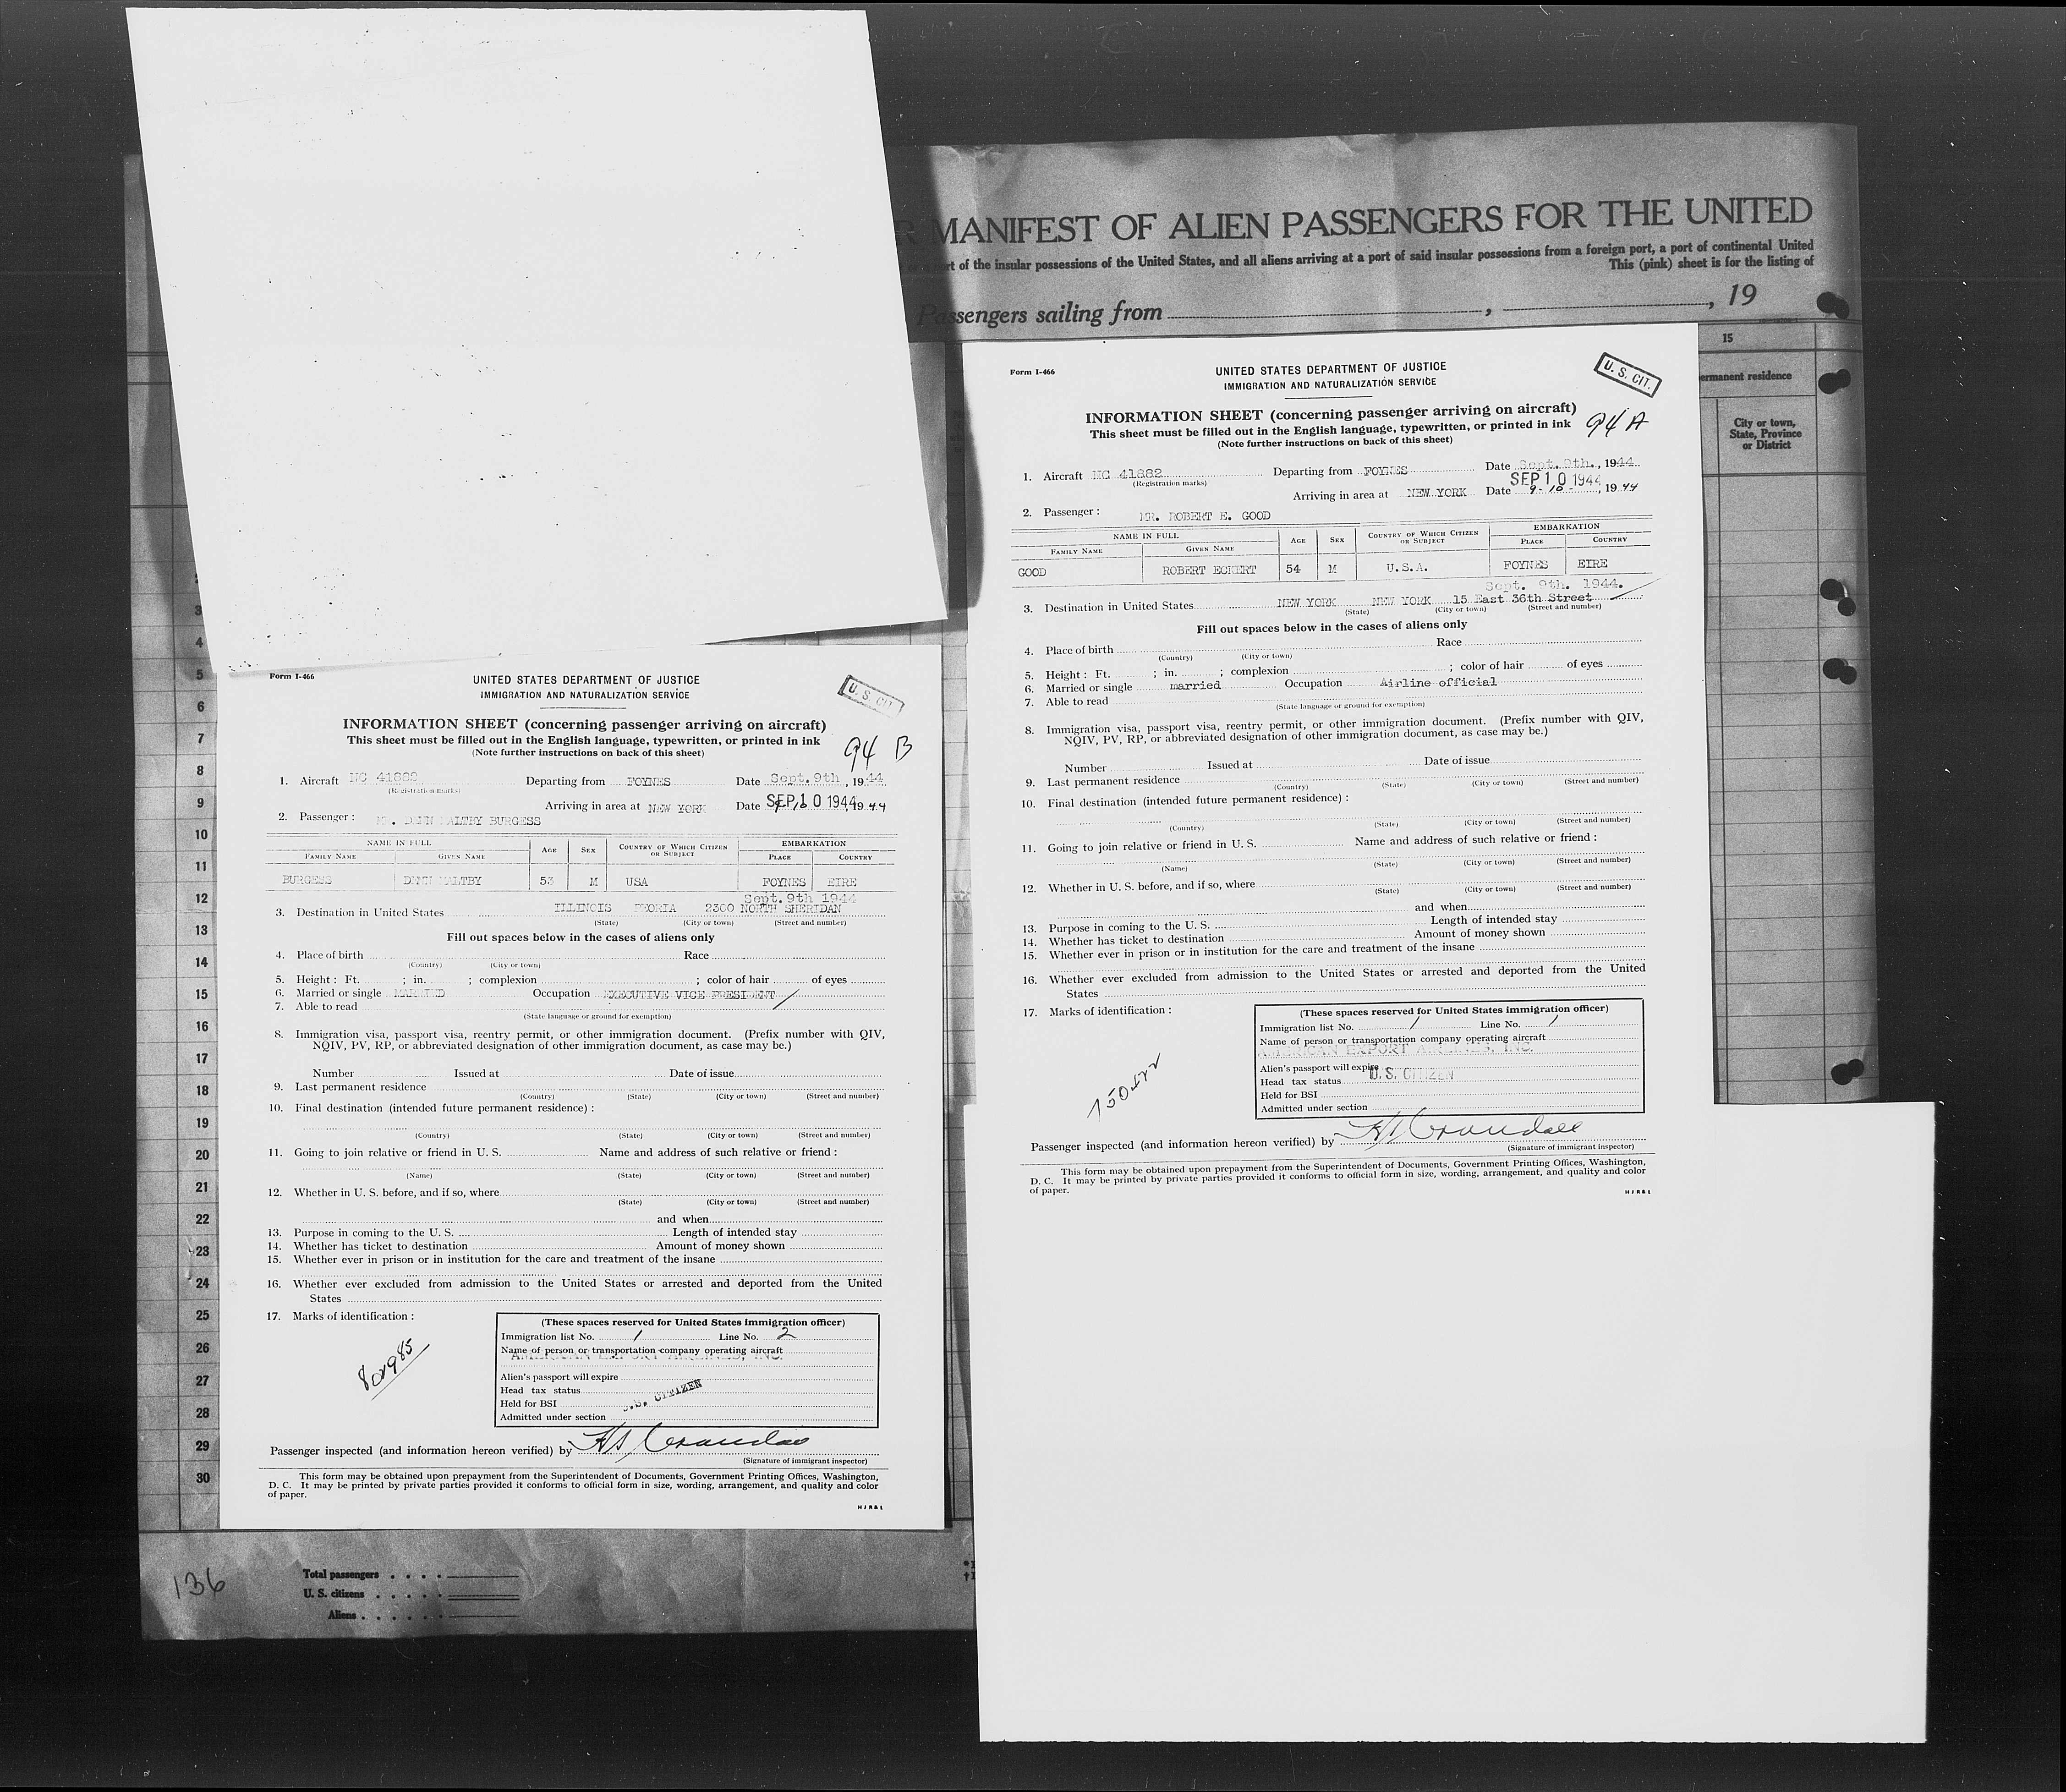 MANIFEST OF ALIEN PASSENGERS FOR THE UNITED
of the insular possessions of the United States, and all aliens arriving at a port of said insular possessions from a foreign port, a port of continental United
This (pink) sheet is for the listing of
Passengers sailing from , , 19
15
permanent residence
City or town,
State, Province
or District
3
4
5
6
7
8
9
10
11
12
13
14
15
16
17
18
19
20
21
22
23
24
25
26
27
28
29
30
136
Total passengers
U. S. citizens
Aliens
Form I-466
UNITED STATES DEPARTMENT OF JUSTICE
IMMIGRATION AND NATURALIZATION SERVICE
U. S. CIT.
INFORMATION SHEET (concerning passenger arriving on aircraft)
This sheet must be filled out in the English language, typewritten, or printed in ink
(Note further instructions on back of this sheet)
94 B
1. Aircraft NC 41882 Departing from FOYNES Date Sept. 9th, 1944
(Registration marks)
Arriving in area at NEW YORK Date SEP 10 1944, 1944
2. Passenger: BURGESS
NAME IN FULL AGE SEX COUNTRY OF WHICH CITIZEN OR SUBJECT EMBARKATION
FAMILY NAME GIVEN NAME PLACE COUNTRY
BURGESS MALTBY 53 M USA FOYNES EIRE
Sept. 9th 1944
3. Destination in United States ILLINOIS PEORIA 2300 NORTH SHERIDAN
(State) (City or town) (Street and number)
Fill out spaces below in the cases of aliens only
4. Place of birth Race
(Country) (City or town)
5. Height: Ft. ; in. ; complexion ; color of hair of eyes
6. Married or single MARRIED Occupation EXECUTIVE VICE PRESIDENT
7. Able to read
(State language or ground for exemption)
8. Immigration visa, passport visa, reentry permit, or other immigration document. (Prefix number with QIV,
NQIV, PV, RP, or abbreviated designation of other immigration document, as case may be.)
Number Issued at Date of issue
9. Last permanent residence
(Country) (State) (City or town) (Street and number)
10. Final destination (intended future permanent residence):
(Country) (State) (City or town) (Street and number)
11. Going to join relative or friend in U. S. Name and address of such relative or friend:
(Name) (State) (City or town) (Street and number)
12. Whether in U. S. before, and if so, where
(State) (City or town) (Street and number)
and when
13. Purpose in coming to the U. S. Length of intended stay
14. Whether has ticket to destination Amount of money shown
15. Whether ever in prison or in institution for the care and treatment of the insane
16. Whether ever excluded from admission to the United States or arrested and deported from the United
States
17. Marks of identification:
(These spaces reserved for United States immigration officer)
Immigration list No. 1 Line No. 2
Name of person or transportation company operating aircraft
AMERICAN EXPORT AIRLINES, INC.
Alien's passport will expire
Head tax status
U.S. CITIZEN
Held for BSI
Admitted under section
Passenger inspected (and information hereon verified) by
(Signature of immigrant inspector)
This form may be obtained upon prepayment from the Superintendent of Documents, Government Printing Offices, Washington,
D. C. It may be printed by private parties provided it conforms to official form in size, wording, arrangement, and quality and color
of paper.
H J R & L
Form I-466
UNITED STATES DEPARTMENT OF JUSTICE
IMMIGRATION AND NATURALIZATION SERVICE
U. S. CIT.
INFORMATION SHEET (concerning passenger arriving on aircraft)
This sheet must be filled out in the English language, typewritten, or printed in ink
(Note further instructions on back of this sheet)
94 A
1. Aircraft NC 41882 Departing from FOYNES Date Sept. 9th., 1944
(Registration marks)
SEP 10 1944
Arriving in area at NEW YORK Date 9-10-, 1944
2. Passenger: MR. ROBERT E. GOOD
NAME IN FULL AGE SEX COUNTRY OF WHICH CITIZEN OR SUBJECT EMBARKATION
FAMILY NAME GIVEN NAME PLACE COUNTRY
GOOD ROBERT ECKERT 54 M U.S.A. FOYNES EIRE
Sept. 9th. 1944.
3. Destination in United States NEW YORK NEW YORK 15 East 36th Street
(State) (City or town) (Street and number)
Fill out spaces below in the cases of aliens only
4. Place of birth Race
(Country) (City or town)
5. Height: Ft. ; in. ; complexion ; color of hair of eyes
6. Married or single married Occupation Airline official
7. Able to read
(State language or ground for exemption)
8. Immigration visa, passport visa, reentry permit, or other immigration document. (Prefix number with QIV,
NQIV, PV, RP, or abbreviated designation of other immigration document, as case may be.)
Number Issued at Date of issue
9. Last permanent residence
(Country) (State) (City or town) (Street and number)
10. Final destination (intended future permanent residence):
(Country) (State) (City or town) (Street and number)
11. Going to join relative or friend in U. S. Name and address of such relative or friend:
(Name) (State) (City or town) (Street and number)
12. Whether in U. S. before, and if so, where
(State) (City or town) (Street and number)
and when
13. Purpose in coming to the U. S. Length of intended stay
14. Whether has ticket to destination Amount of money shown
15. Whether ever in prison or in institution for the care and treatment of the insane
16. Whether ever excluded from admission to the United States or arrested and deported from the United
States
17. Marks of identification:
(These spaces reserved for United States immigration officer)
Immigration list No. 1 Line No. 1
Name of person or transportation company operating aircraft
AMERICAN EXPORT AIRLINES, INC.
Alien's passport will expire
U. S. CITIZEN
Head tax status
Held for BSI
Admitted under section
Passenger inspected (and information hereon verified) by
(Signature of immigrant inspector)
This form may be obtained upon prepayment from the Superintendent of Documents, Government Printing Offices, Washington,
D. C. It may be printed by private parties provided it conforms to official form in size, wording, arrangement, and quality and color
of paper.
H J R & L